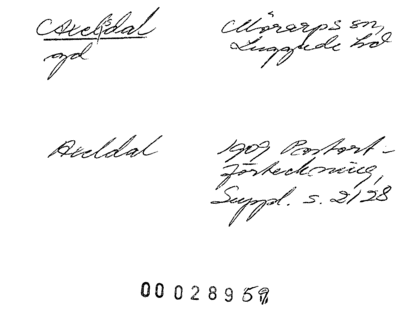 Axeldal Mörarps sn,
gd Luggude hd
Axeldal 1909 Postort-
förteckning,
Suppl. s. 2128
00 028959